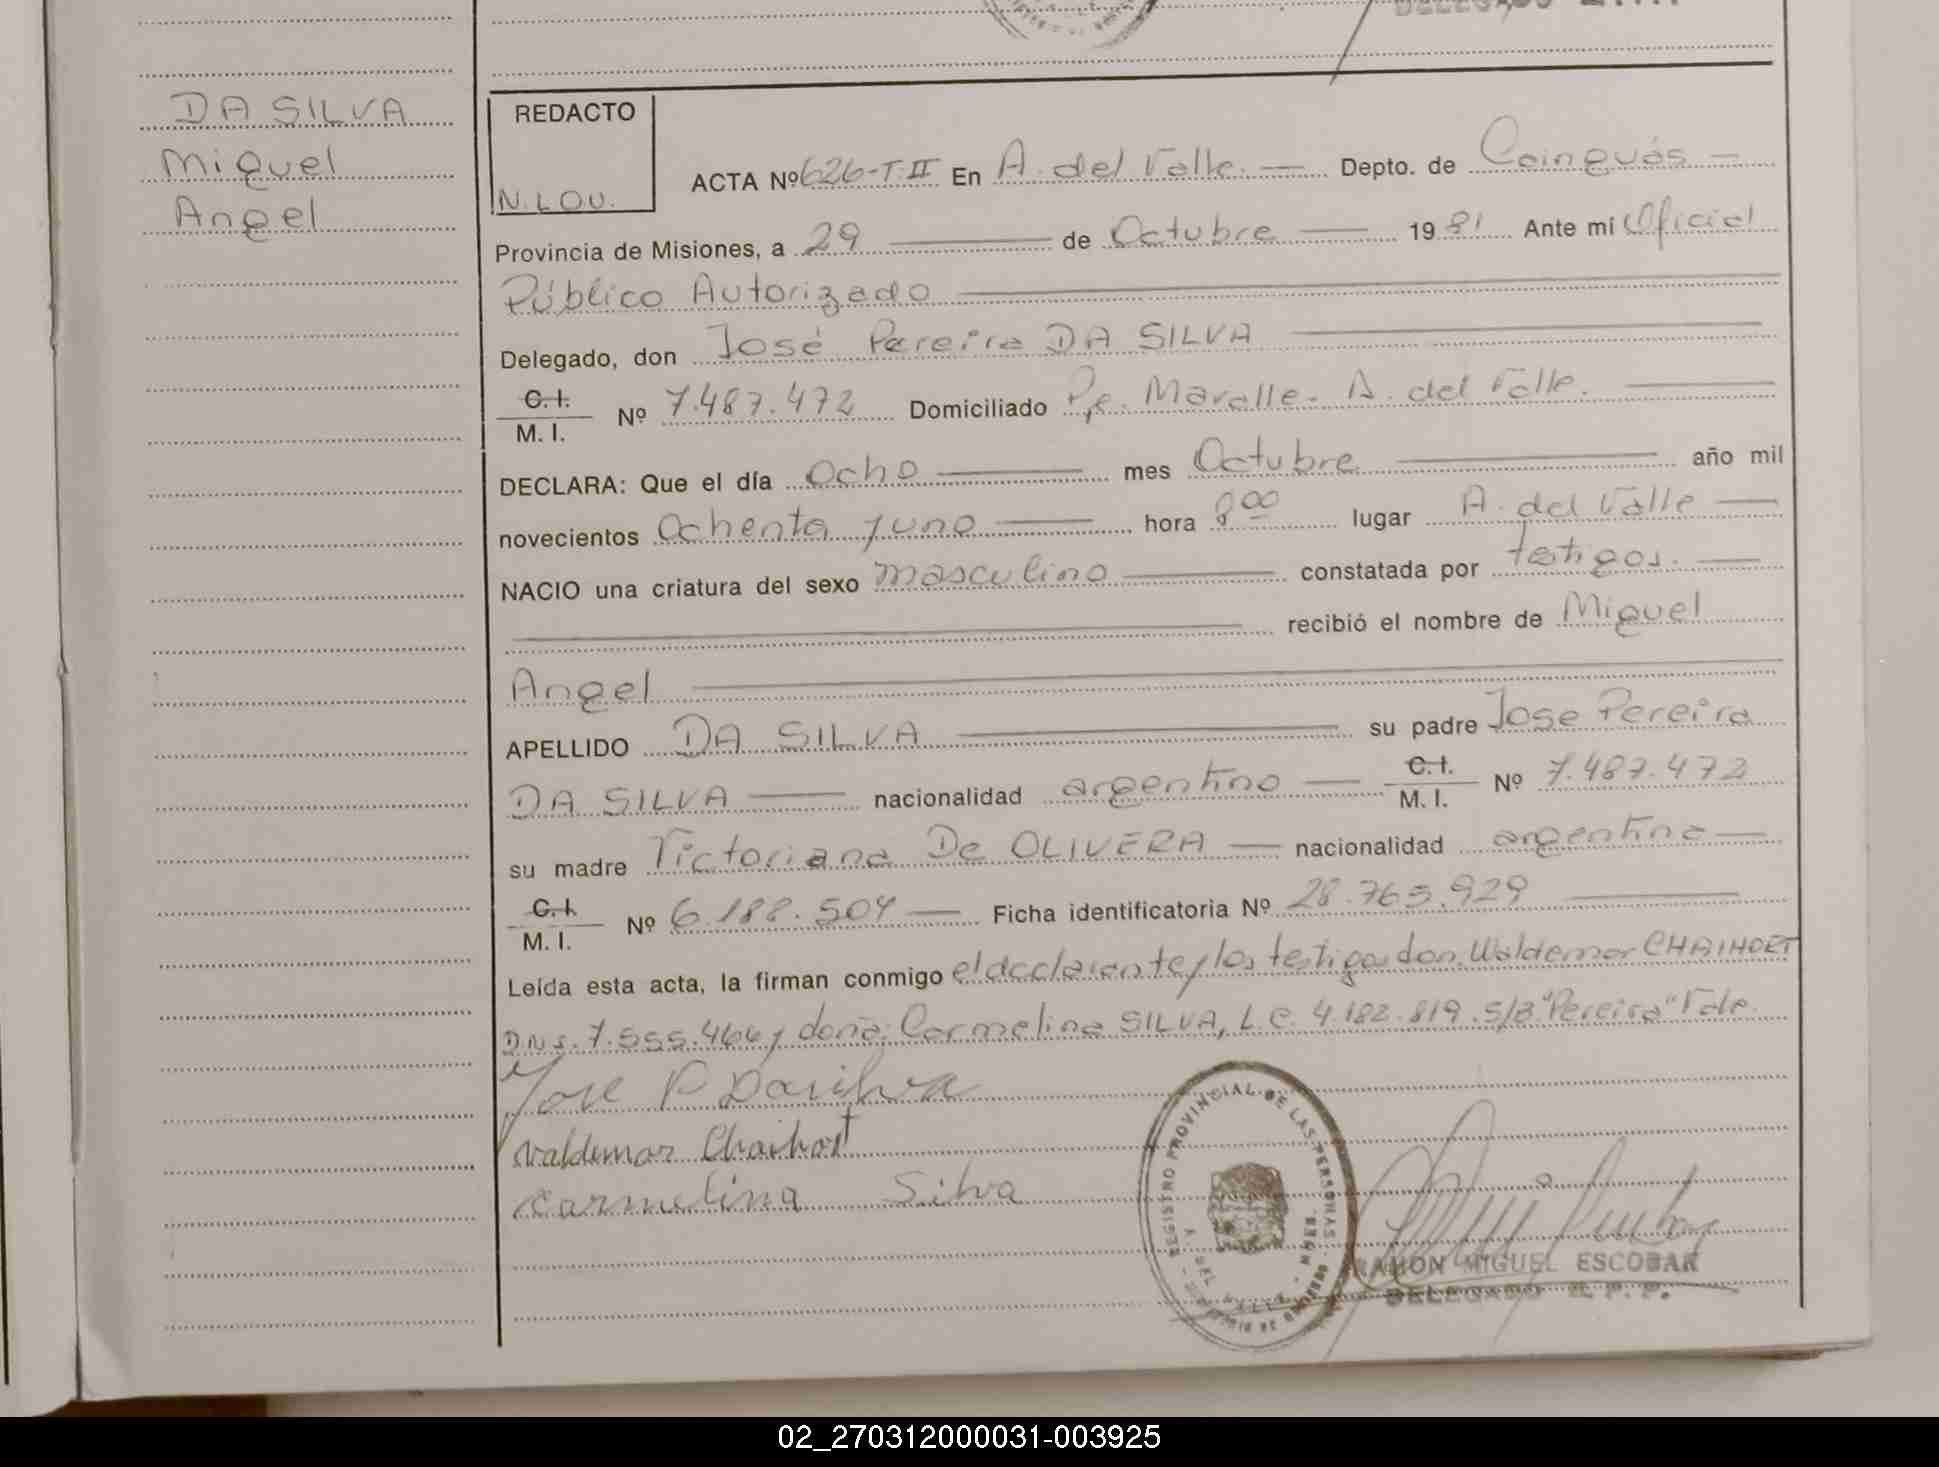 DA SILVA
Miguel
Angel
REDACTO
N.LOU.
ACTA Nº 626-T.II En A. del Valle. Depto. de Cainguás
Provincia de Misiones, a 29 de Octubre 1981 Ante mí Oficial
Público Autorizado
Delegado, don José Pereira DA SILVA
C.I. M. I. Nº 7.487.472 Domiciliado Pje. Maralle. A. del Valle.
DECLARA: Que el día Ocho mes Octubre año mil
novecientos Ochenta y uno hora 8 00 lugar A. del Valle
NACIO una criatura del sexo masculino constatada por testigos.
recibió el nombre de Miguel
Angel
APELLIDO DA SILVA su padre Jose Pereira
DA SILVA nacionalidad argentino C.I. M. I. Nº 7.487.472
su madre Victoriana De OLIVERA nacionalidad argentina
C.I. M. I. Nº 6.188.504 Ficha identificatoria Nº 28.765.929
Leída esta acta, la firman conmigo el declarante y los testigos don Waldemar CHAIHORT
D.N.I. 7.555.466 y doña: Carmelina SILVA, L.C. 4.182.819. S/B "Pereira" Vale.
Jose P Dasilva
Valdemar Chaihort
Carmelina Silva
REGISTRO PROVINCIAL DE LAS PERSONAS
RAMON MIGUEL ESCOBAR
DELEGADO R.P.P.
02_270312000031-003925